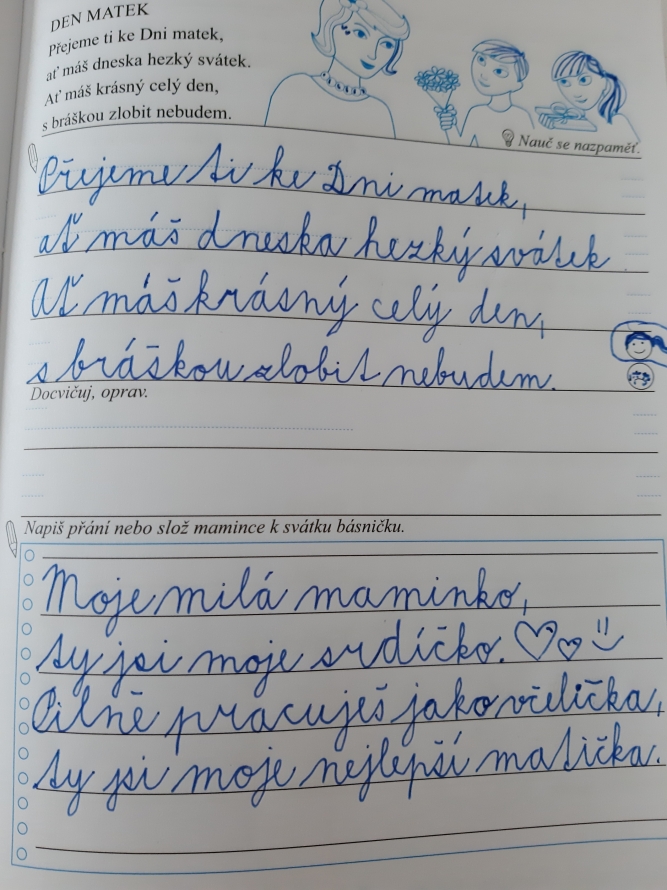 DEN MATEK
Přejeme ti ke Dni matek,
ať máš dneska hezký svátek.
Ať máš krásný celý den,
s bráškou zlobit nebudem.
Nauč se nazpaměť.
Přejeme ti ke Dni matek,
ať máš dneska hezký svátek
Ať máš krásný celý den,
s bráškou zlobit nebudem.
Docvičuj, oprav.
Napiš přání nebo slož mamince k svátku básničku.
Moje milá maminko,
ty jsi moje srdíčko.
Pilně pracuješ jako včelička,
ty jsi moje nejlepší matička.